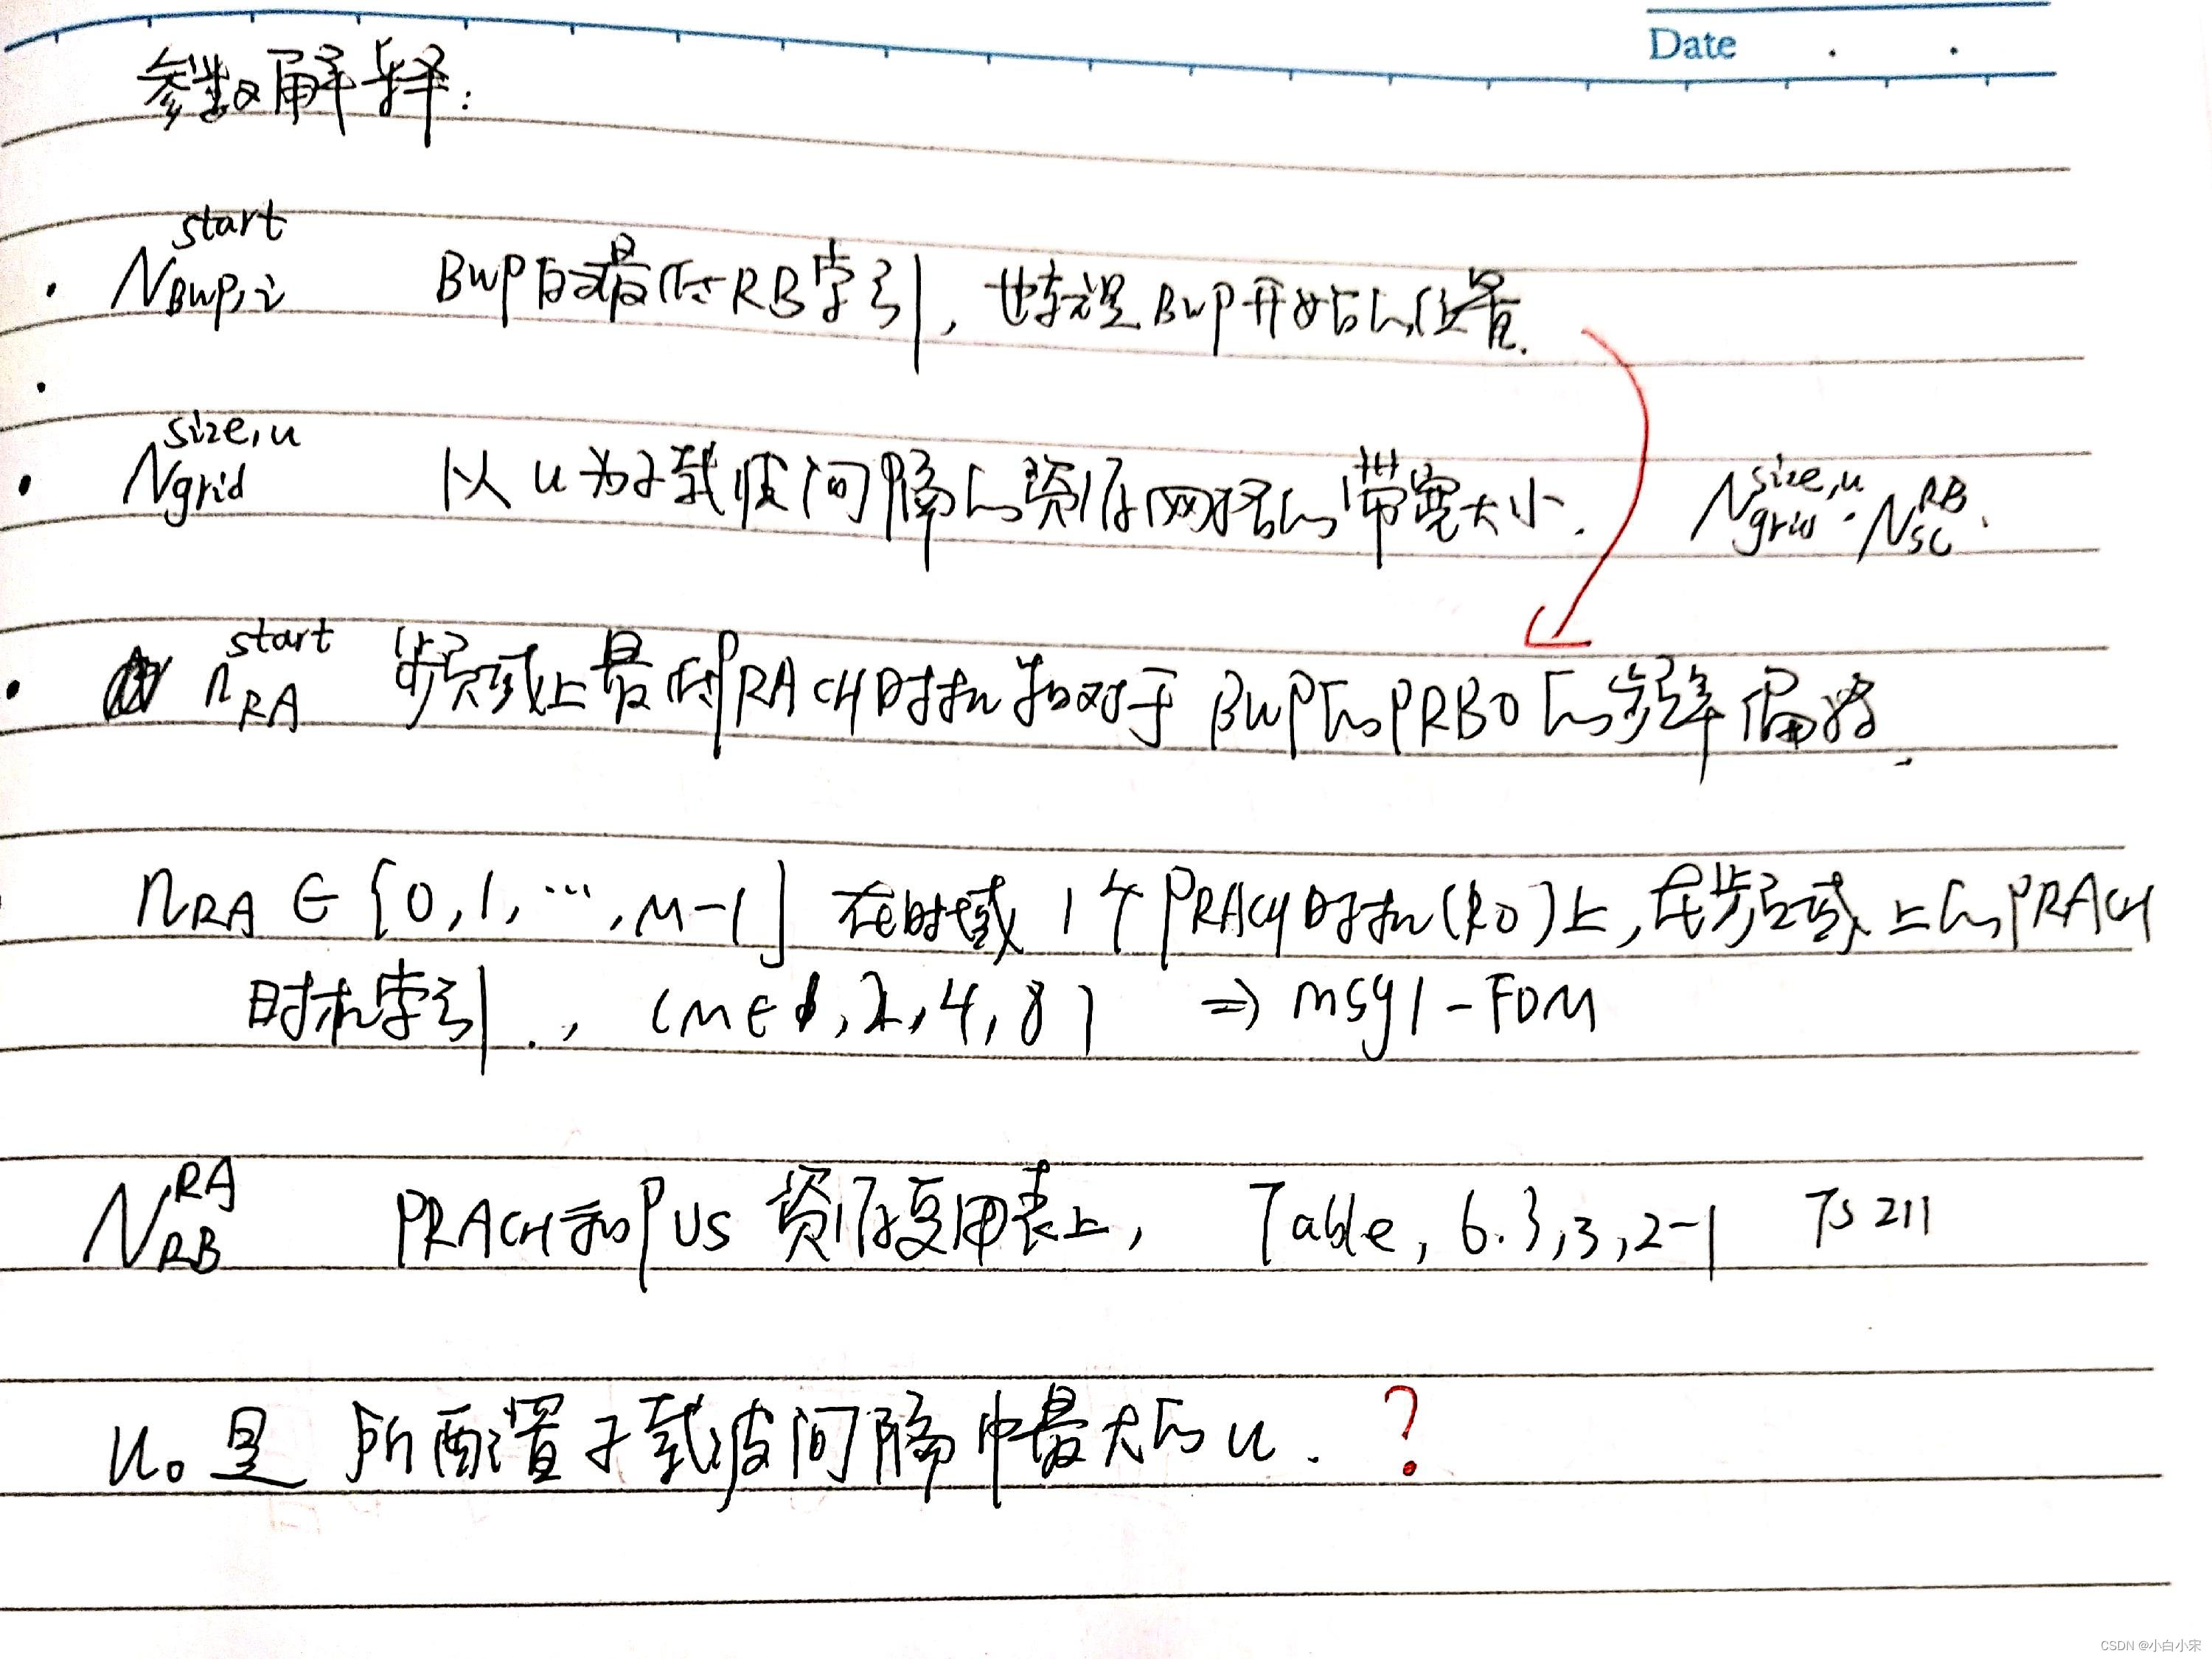 Date . .
参数解释:
· N_{BWP,i}^{start} BWP的最低RB索引, 也就是BWP开始的位置.
·
· N_{grid}^{size,u} 以u为子载波间隔的资源网格的带宽大小. N_{grid}^{size,u} · N_{SC}^{RB}.
· n_{RA}^{start} 频域上最低PRACH时机相对于BWP的PRB0的频率偏移.
n_{RA} ∈ {0,1,…,M-1} 在时域1个PRACH时机(RO)上,在频域上的PRACH
时机索引., (M∈1,2,4,8) ⇒ msg1-FDM
N_{RB}^{RA} PRACH和PUS资源复用表上, Table, 6.3,3,2-1 TS 211
u₀是 所配置子载波间隔中最大的u. ?
CSDN @小白小宋